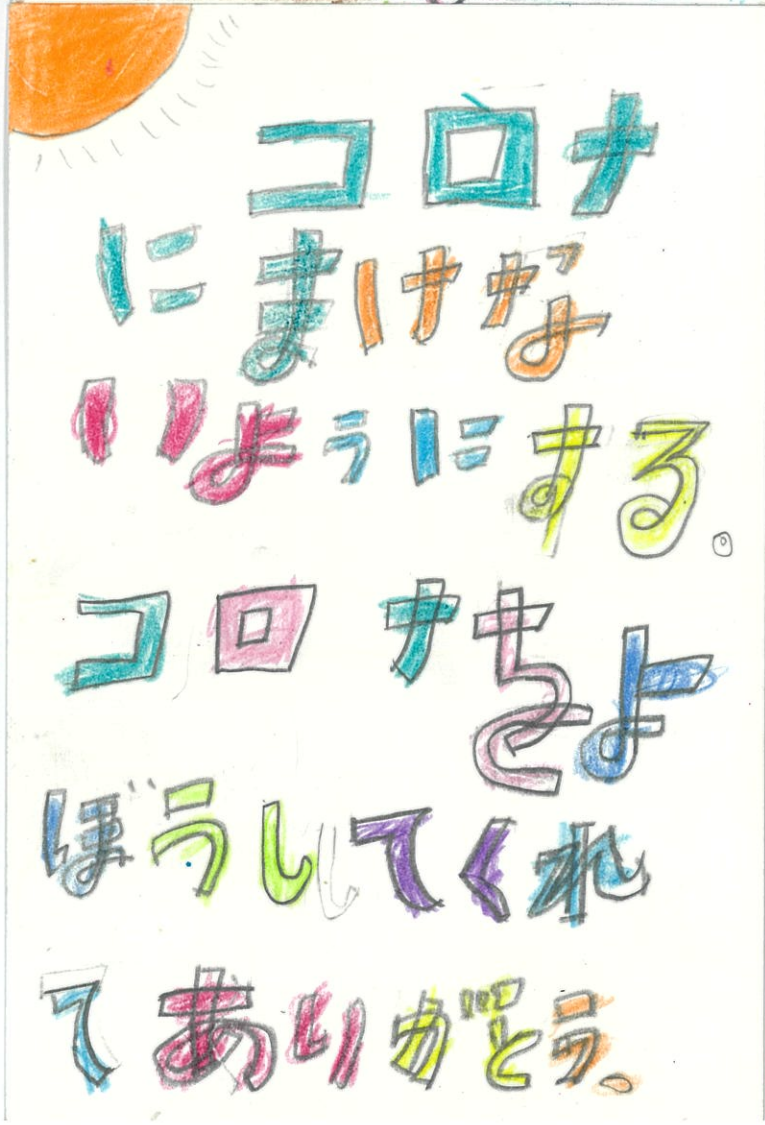 コロナ
にまけな
いようにする。
コロナをよ
ぼうしてくれ
てありがとう。